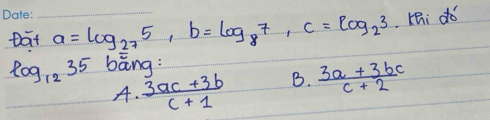 Date:
Đặt a = log₂₇5 , b = log₈7 , c = log₂3 . Khi đó
log₁₂35 bằng:
A. (3ac + 3b)/(c + 1) B. (3a + 3bc)/(c + 2)